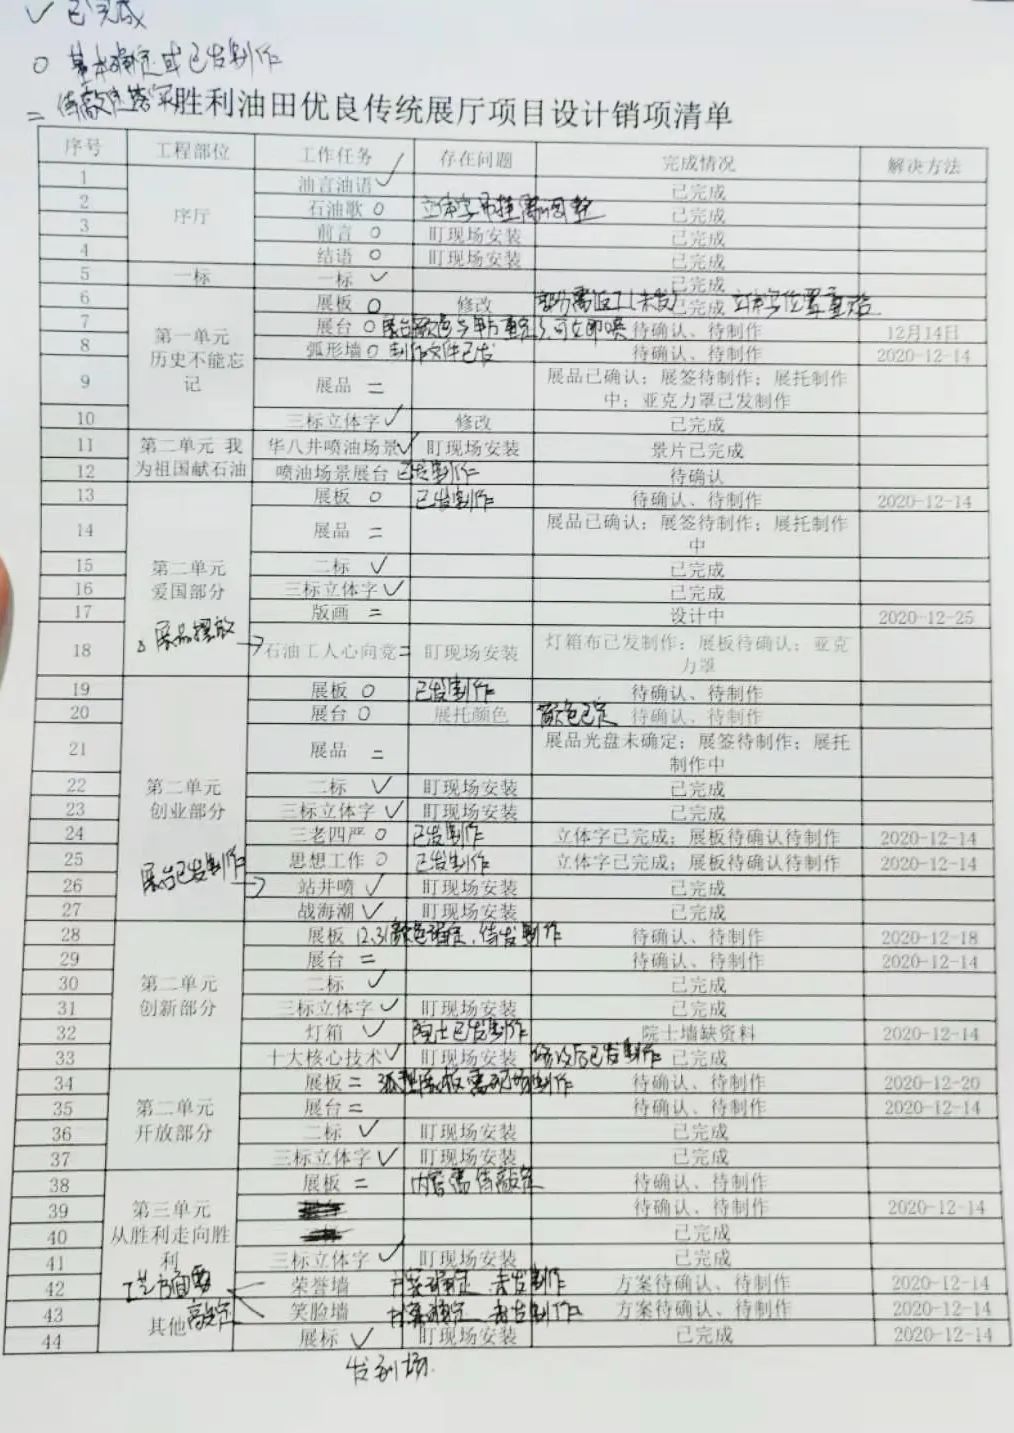 ✓ 已完成
○ 基本确定或已发制作
=
胜利油田优良传统展厅项目设计销项清单
序号 工程部位 工作任务 存在问题 完成情况 解决方法
1 序厅 油言油语 ✓ 已完成
2 石油歌 ○ 立体字吊挂需调整 已完成
3 前言 ○ 盯现场安装 已完成
4 结语 ○ 盯现场安装 已完成
5 一标 一标 ✓ 已完成
6 第一单元 历史不能忘记 展板 ○ 修改 部分需返工(未发) 已完成
7 展台 ○ 待确认、待制作 12月14日
8 弧形墙 ○ 制作文件已发 待确认、待制作 2020-12-14
9 展品 = 展品已确认；展签待制作；展托制作中；亚克力罩已发制作
10 三标立体字 ✓ 修改 已完成
11 第二单元 我为祖国献石油 华八井喷油场景 ✓ 盯现场安装 景片已完成
12 喷油场景展台 已发制作 待确认
13 第二单元 爱国部分 展板 ○ 已发制作 待确认、待制作 2020-12-14
14 展品 = 展品已确认；展签待制作；展托制作中
15 二标 ✓ 已完成
16 三标立体字 ✓ 已完成
17 版画 = 设计中 2020-12-25
展品摆放
18 石油工人心向党 = 盯现场安装 灯箱布已发制作；展板待确认；亚克力罩
19 第二单元 创业部分 展板 ○ 已发制作 待确认、待制作
20 展台 ○ 展托颜色 颜色已定 待确认、待制作
21 展品 = 展品光盘未确定；展签待制作；展托制作中
22 二标 ✓ 盯现场安装 已完成
23 三标立体字 ✓ 盯现场安装 已完成
24 三老四严 ○ 已发制作 立体字已完成；展板待确认待制作 2020-12-14
25 思想工作 ○ 已发制作 立体字已完成；展板待确认待制作 2020-12-14
展台已发制作
26 站井喷 ✓ 盯现场安装 已完成
27 战海潮 ✓ 盯现场安装 已完成
28 第二单元 创新部分 展板 颜色确定、待发制作 待确认、待制作 2020-12-18
29 展台 = 待确认、待制作 2020-12-14
30 二标 ✓ 已完成
31 三标立体字 ✓ 盯现场安装 已完成
32 灯箱 ✓ 院士已发制作 院士墙缺资料 2020-12-14
33 十大核心技术 ✓ 盯现场安装 修改后已发制作 已完成
34 第二单元 开放部分 展板 = 弧型展板需现场制作 待确认、待制作 2020-12-20
35 展台 = 待确认、待制作 2020-12-14
36 二标 ✓ 盯现场安装 已完成
37 三标立体字 ✓ 盯现场安装 已完成
38 第三单元 从胜利走向胜利 展板 = 内容需待敲定 待确认、待制作
39 待确认、待制作 2020-12-14
40 已完成
41 三标立体字 ✓ 盯现场安装 已完成
42 其他 荣誉墙 方案确定 未发制作 方案待确认、待制作 2020-12-14
43 笑脸墙 方案确定 未发制作 方案待确认、待制作 2020-12-14
44 展标 ✓ 盯现场安装 已完成 2020-12-14
发到场.